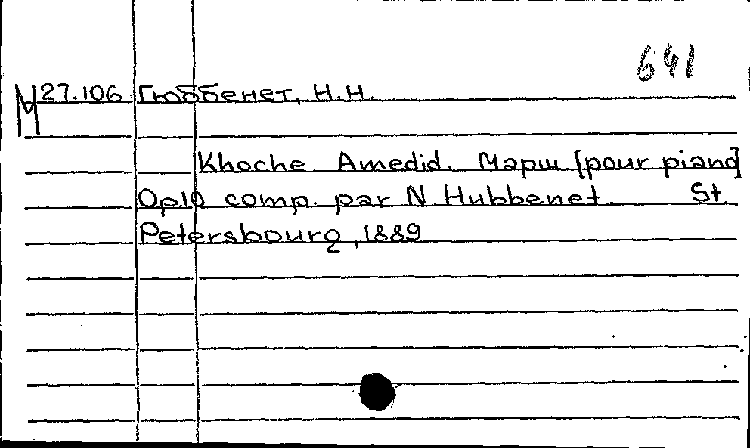 641
М 27.106 Гюббенет, Н.Н.
Khoche Amedid. Марш [pour piano]
Op10 comp. par N. Hubbenet. St.
Petersbourg, 1889